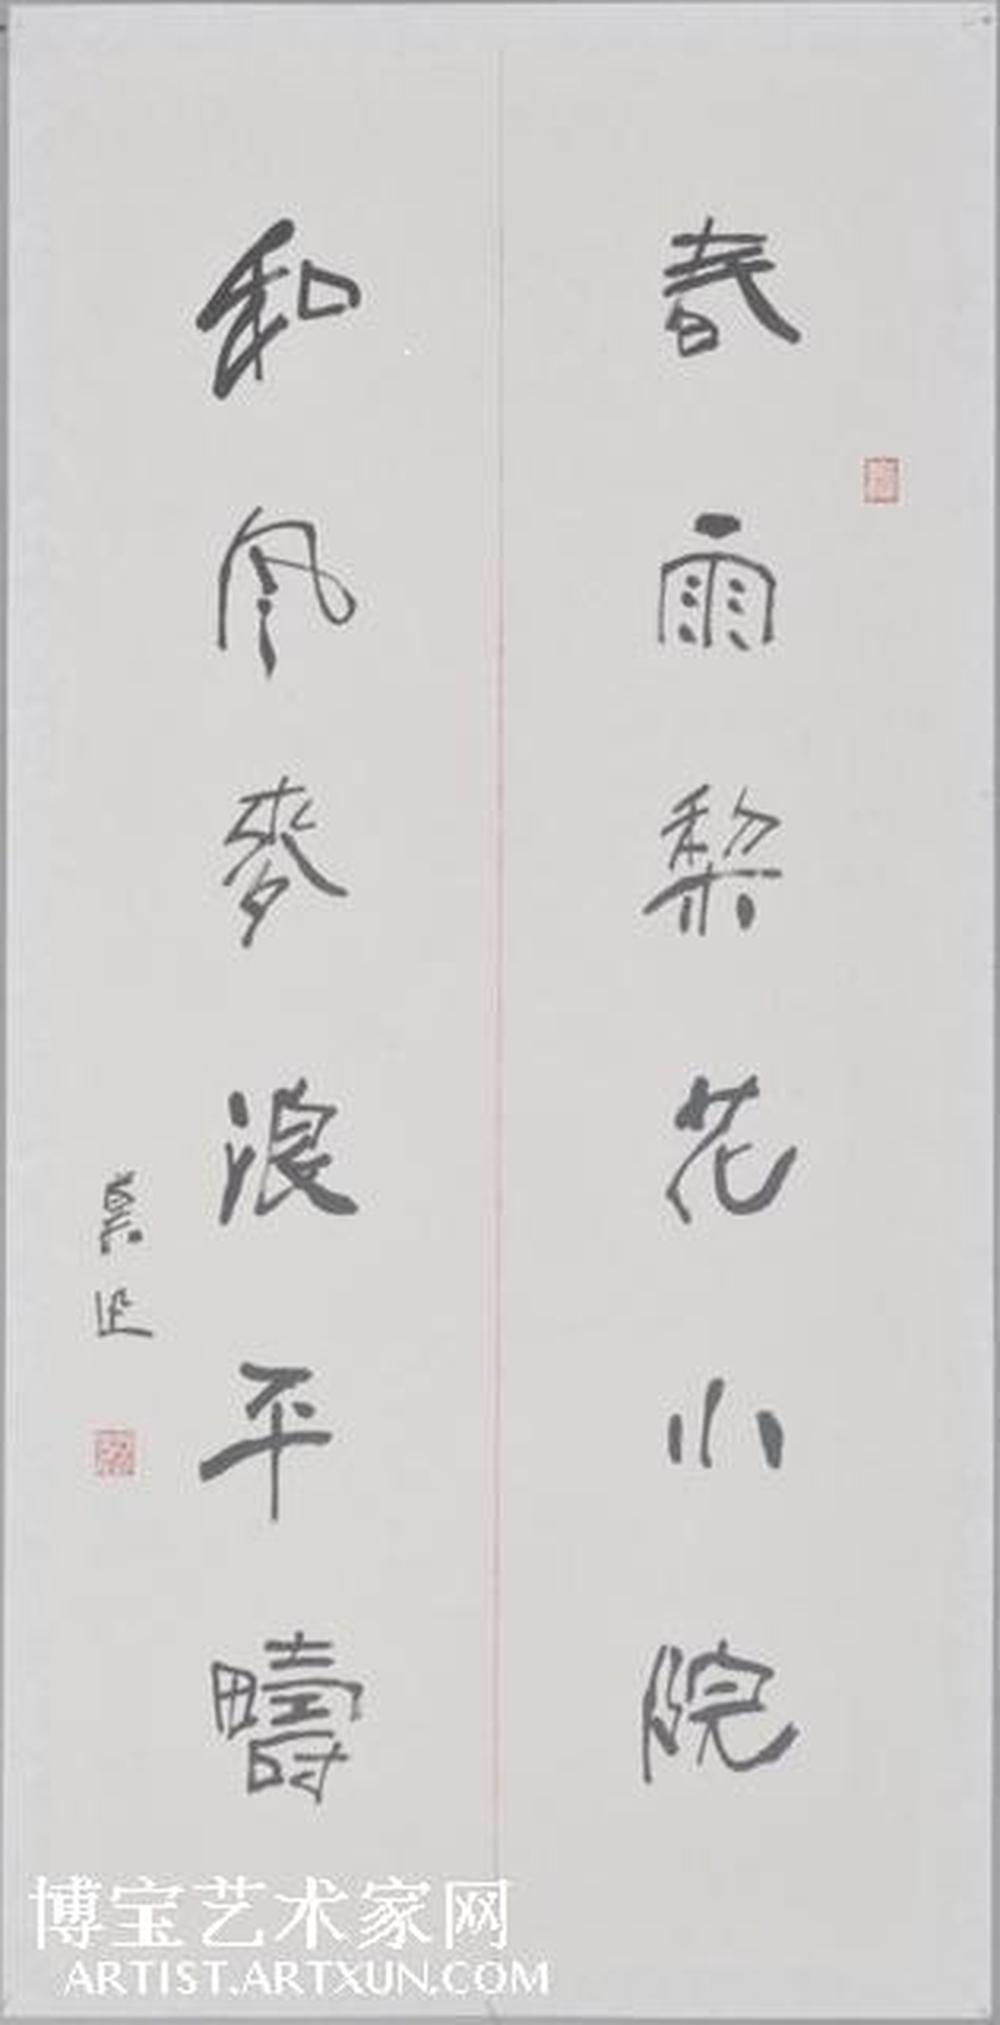 春雨梨花小院
和風麥浪平疇
博宝艺术家网
ARTIST.ARTXUN.COM